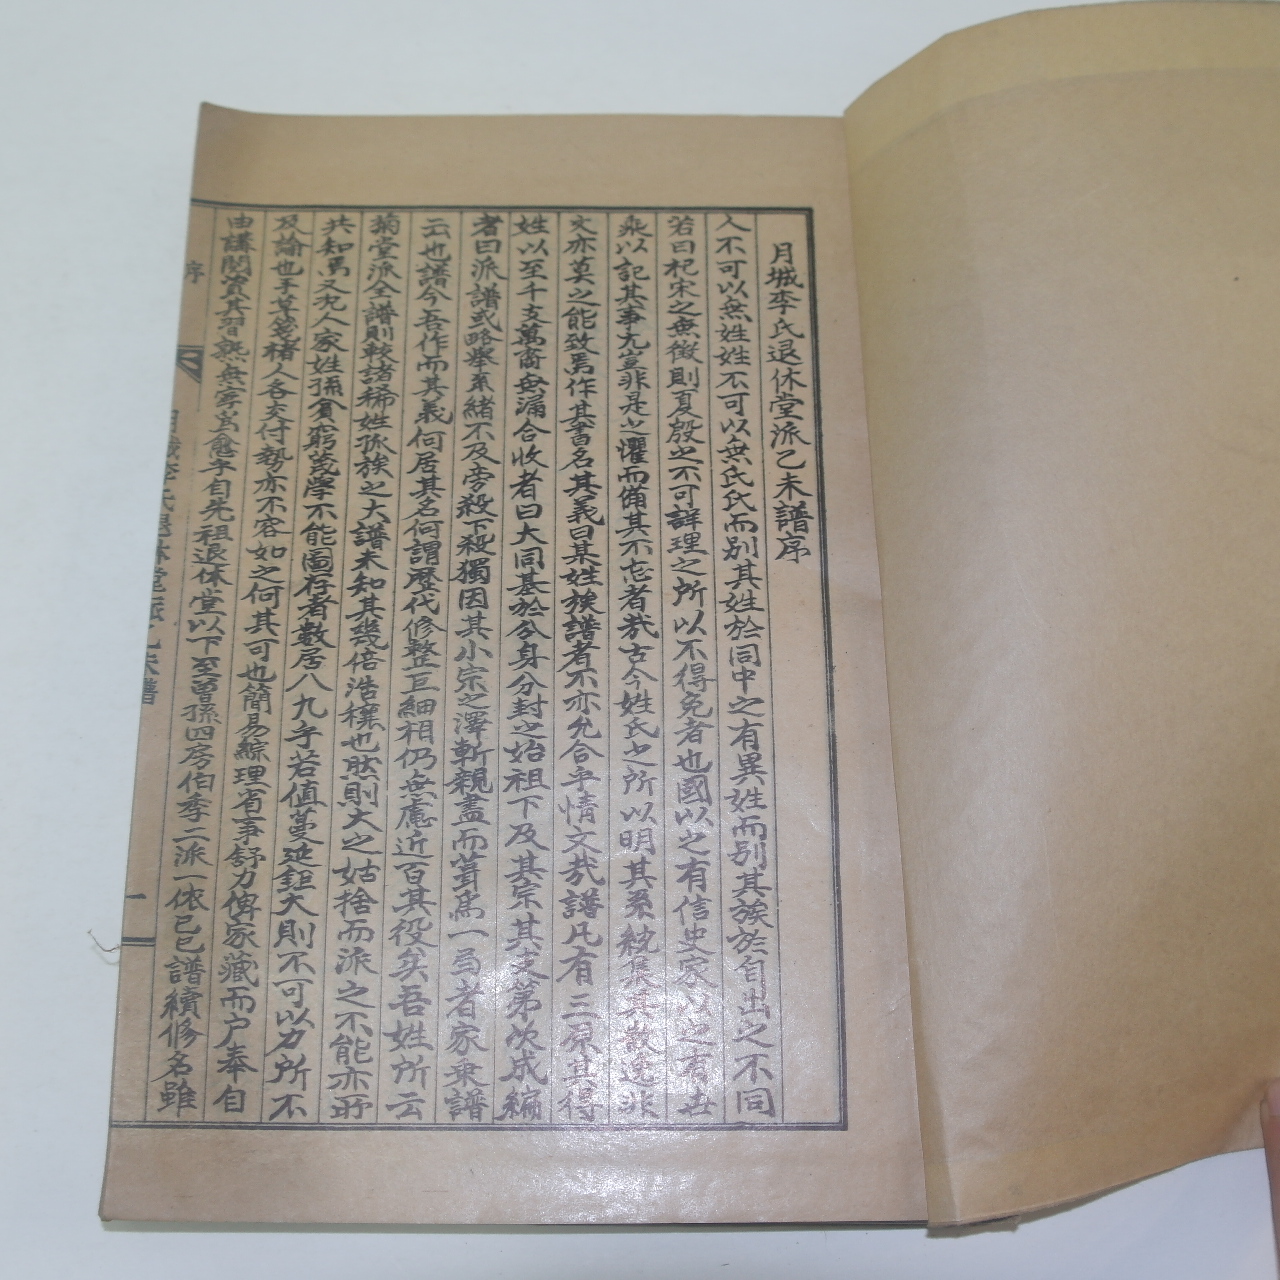 月城李氏退休堂派乙未譜序
人不可以無姓姓不可以無氏氏而別其姓於同中之有異姓而別其族於自出之不同
若曰杞宋之無徵則夏殷之不可詳理之所以不得免者也國以之有信史家以之有世
乘以記其事尤豈非是之懼而備其不忘者哉古今姓氏之所以明其系統集其散逸非
文亦莫之能致焉作其書名其義曰某姓族譜者不亦允合乎情文哉譜凡有三原其得
姓以至千支萬裔無漏合收者曰大同基於分身分封之始祖下及其宗其支第次成編
者曰派譜或略舉系緒不及旁殺下殺獨因其小宗之澤斬親盡而葺爲一局者家乘譜
云也譜今吾作而其義何居其名何謂歷代修整巨細相仍無慮近百其役矣吾姓所云
菊堂派全譜則較諸稀姓孤族之大譜未知其幾倍浩穰也然則大之姑捨而派之不能亦所
共知焉又況人家姓孫貧窮蔑學不能圖存者數居八九乎若值蔓延鉅大則不可以力所不
及論也乎草藁楮人各交付勢亦不容如之何其可也簡易綜理省事舒力俾家藏而户奉自
由講閱資其習熟無寧爲愈乎自先祖退休堂以下至曾孫四房伯季二派一依己巳譜續修名雖
序
月城李氏退休堂派乙未譜
一